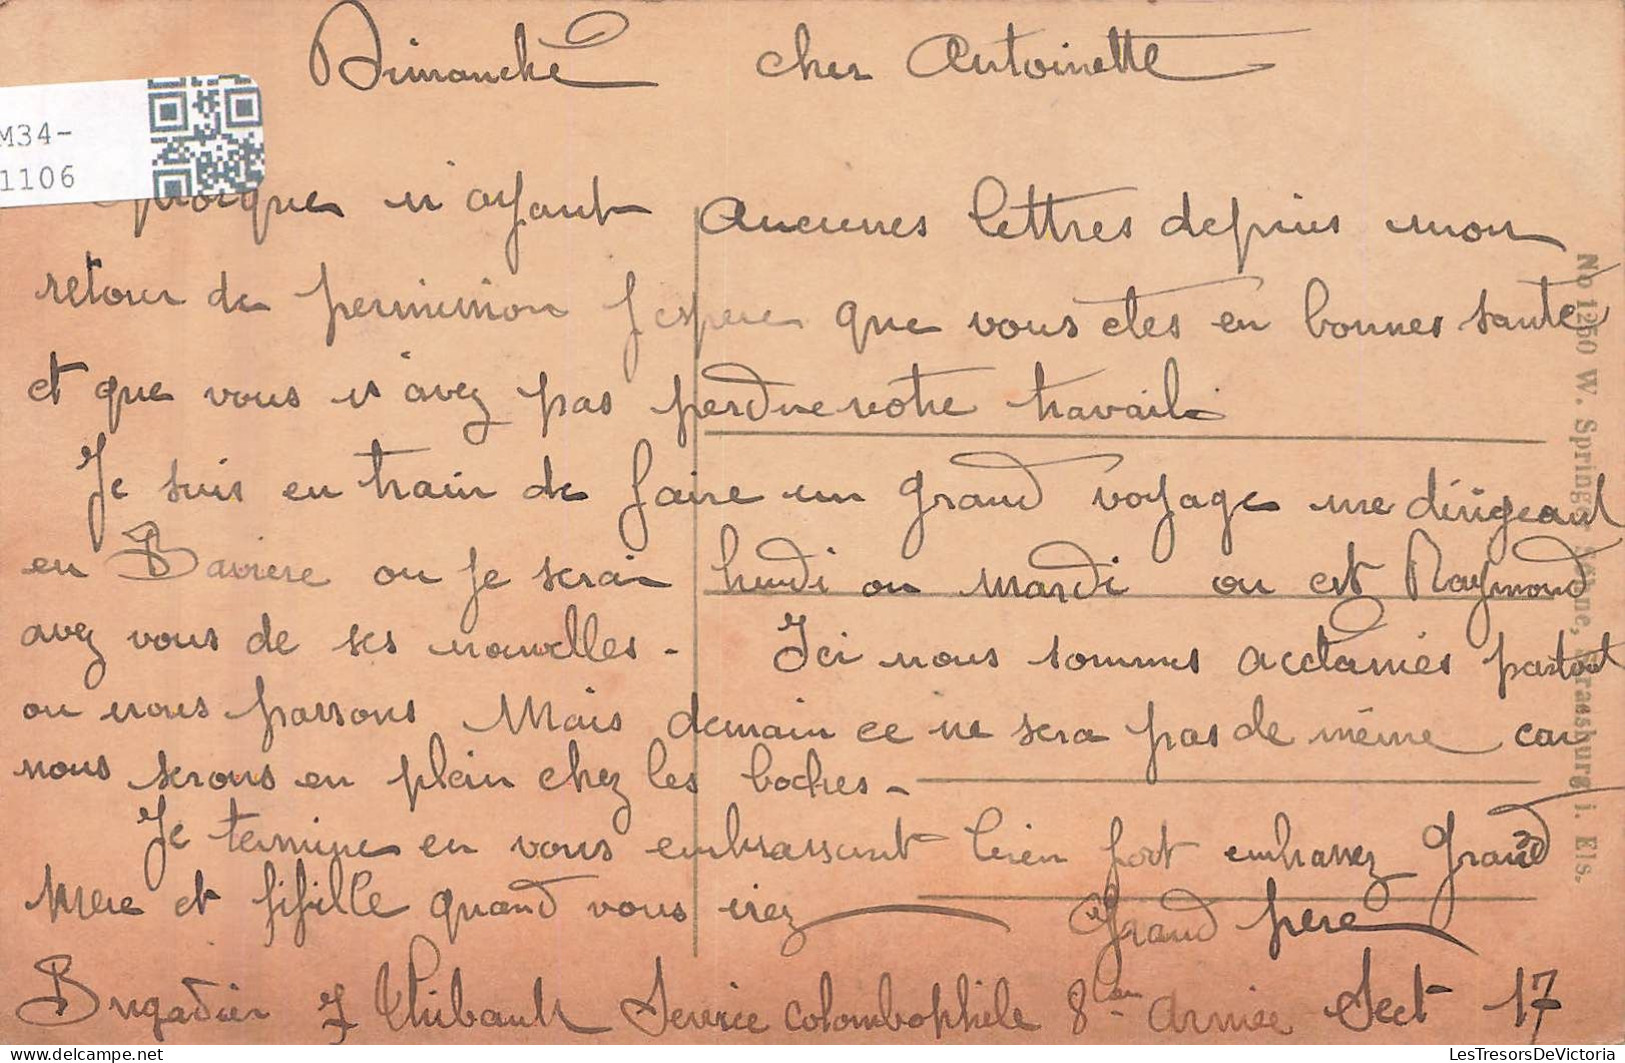 Dimanche cher Antoinette
M34-
1106
Quoique n'ayant aucunes lettres depuis mon
retour de permission J espere que vous etes en bonnes santé
et que vous n'avez pas perdue votre travail
Je suis en train de faire un grand voyage me dirigeant
en Baviere ou je serai lundi ou mardi ou est Raymond
avez vous de ses nouvelles -
Ici nous sommes acclamés partout
ou nous passons Mais demain ce ne sera pas de même car
nous serons en plein chez les boches -
Je termine en vous embrassant bien fort embrassez Grand
Mere et fifille quand vous irez
Grand pere
Brigadier J Thibault Service colombophile 8 eme Armée Sect 17
No 1250 W. Springer Strassburg i. Els.
LesTresorsDeVictoria